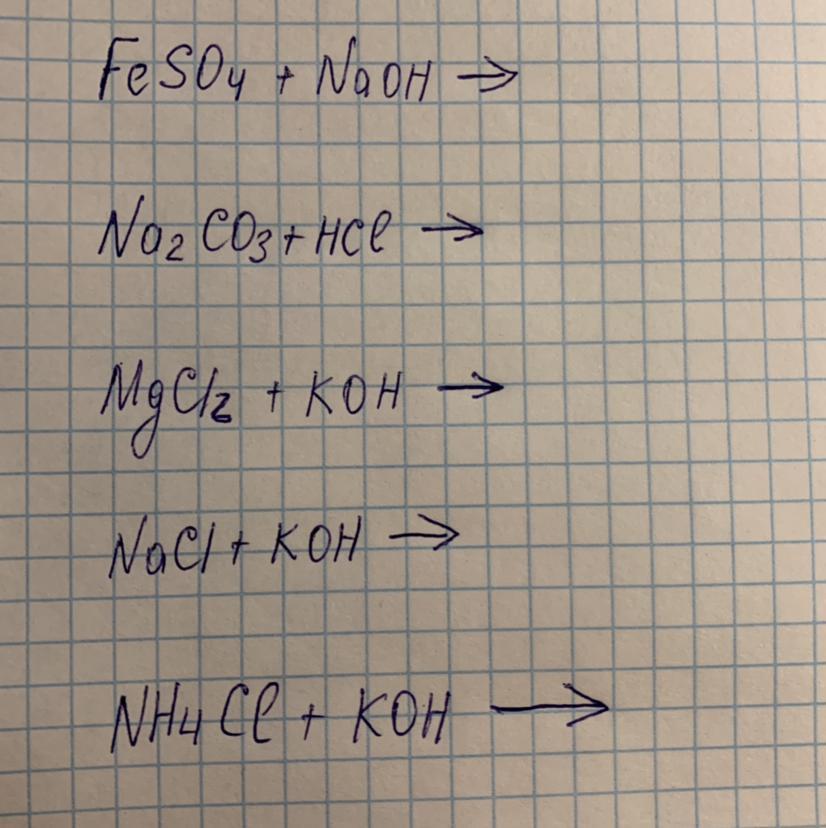 FeSO₄ + NaOH →
Na₂CO₃ + HCl →
MgCl₂ + KOH →
NaCl + KOH →
NH₄Cl + KOH →